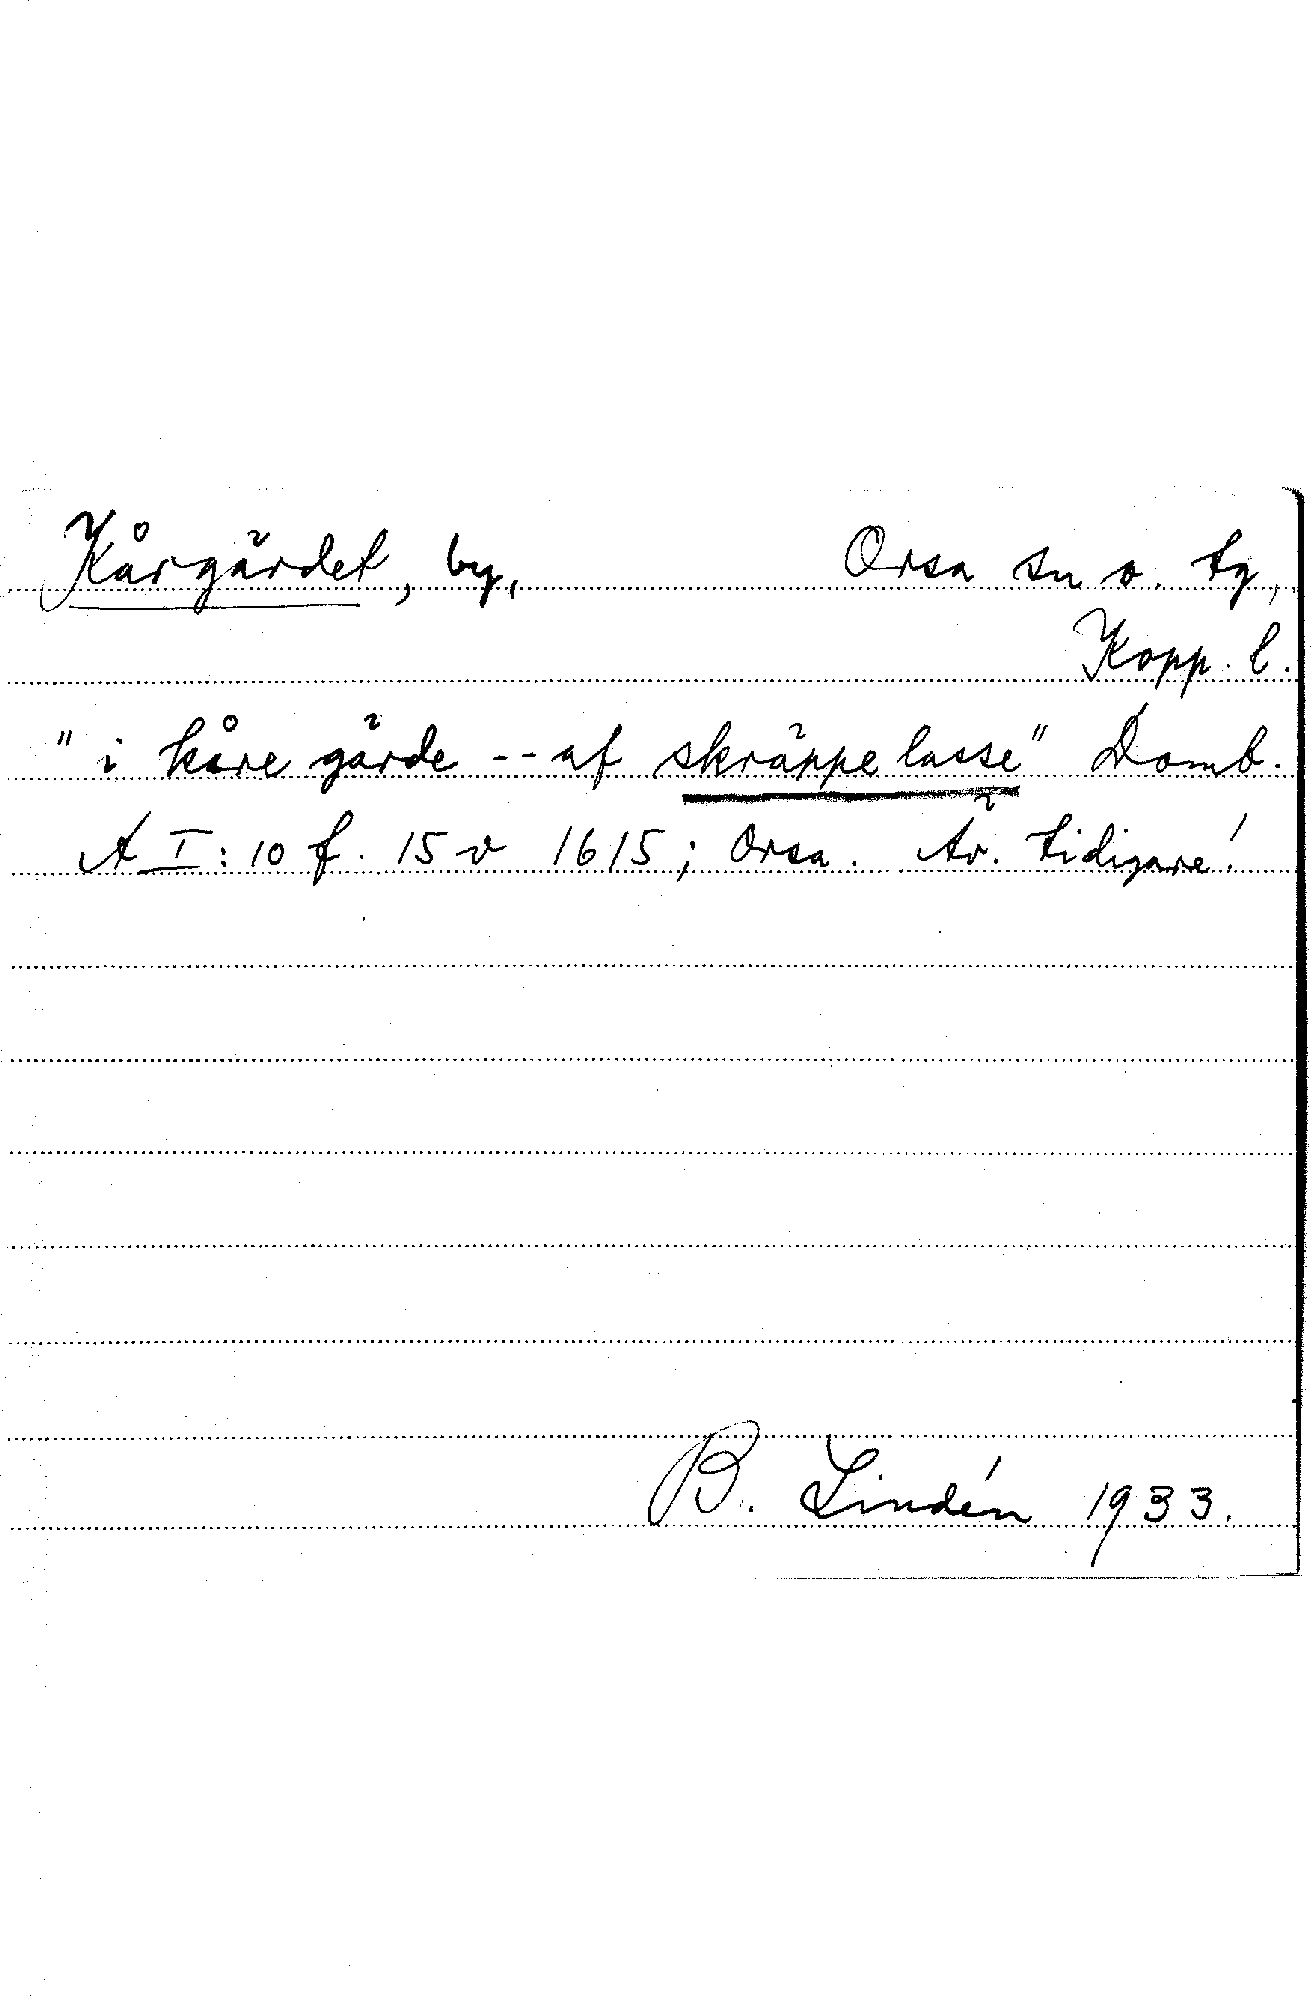 Kårgärdet, by, Orsa sn o. tg,
Kopp. l.
"i kåre gärde -- af skräppe lasse" Domb.
A I:10 f. 15 v 1615; Orsa. Äv. tidigare!
B. Lindén 1933.